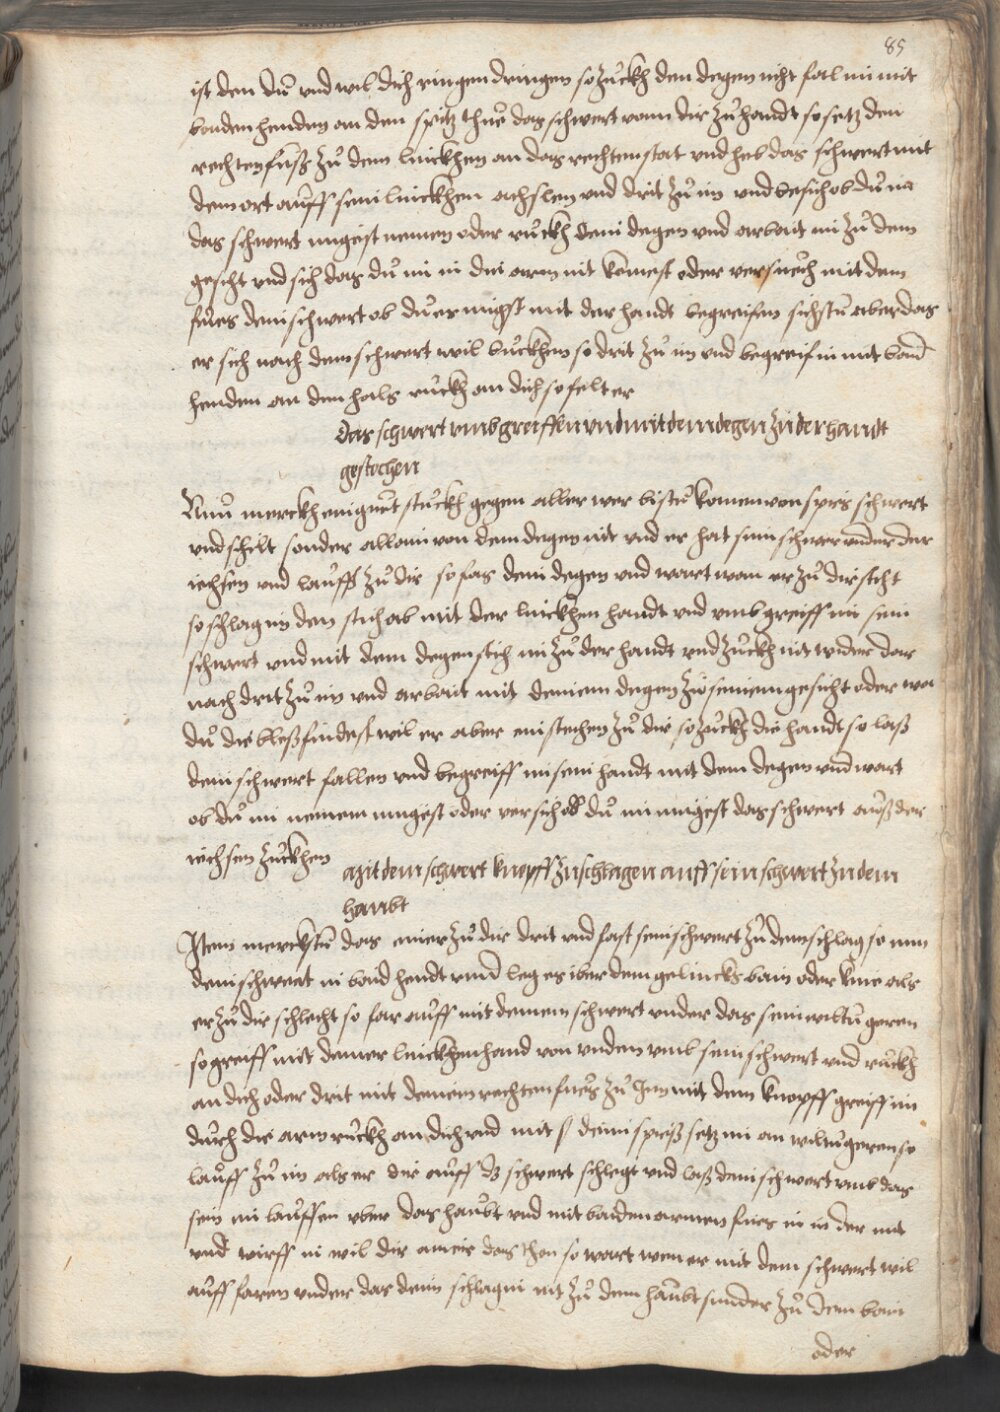 85
ist den du und wil dich ringen dringen so zuckh den degen nicht fal im mit
baiden henden an den spitz thue das schwert vonn dir zu handt so setz den
rechten fuß zu dem linckhen an das rechten stat und heb das schwert mit
dem ort auff sein linckhen achslen und drit zu im und besich ob du im
das schwert mugest nemen oder ruckh dein degen und arbait im zu dem
gesicht und sich das du im in die arm nit komest oder versuech mit dem
fues dein schwert ob du er migst mit der handt begreifen sichstu aber das
er sich nach dem schwert wil buckhen so drit zu im und begreif in mit baid
henden an den hals ruckh an dich so felt er
das schwert umbgreiffen und mit dem degen zu der handt
gestochen
Nuu merckh ein guet stuckh gegen aller wer bistu komen von spies schwert
und schilt sonder allain von dem degen nit und er hat sein schwer under der
iechsen und lauff zu dir so fas dein degen und wart wan er zu dir sticht
so schlag im den stich ab mit der linckhen handt und umbgreiff im sein
schwert und mit dem degen stich im zu der handt und zuckh nit wider dar
nach drit zu im und arbait mit deinem degen zu seinem gesicht oder wa
du die bleß findest wil er aber ein stechen zu dir so zuckh die handt so laß
dein schwert fallen und begreiff im sein handt mit dem degen und wart
ob du im nemem mugest oder versich ob du im mugest das schwert auß der
iechsen zuckhen
Mit dem schwert knopff zu schlagen auff sein schwert zu dem
haubt
Item merckstu das einer zu dir drit und fast sein schwert zu dem schlag so nim
dein schwert in baid hendt und leg es iber dem gelincks bain oder knie als
er zu dir schlecht so far auff mit deinem schwert under das sein wiltu geren
so greiff mit deiner linckhen hand von unden umb sein schwert und ruckh
an dich oder drit mit deinem rechten fues zu Im mit dem knopff greiff im
durch die arm ruckh an dich und mit / deim spieß setz im an wiltu geren so
lauff zu im als er dir auff dz schwert schlegt und laß dein schwert umb das
sein im lauffen uber das haubt und mit baiden armen fues in in der mit
und wirff in wil dir ainer das thon so wart wen er mit dem schwert wil
auff faren under das dein schlag im nit zu dem haubt sunder zu dem bain
oder